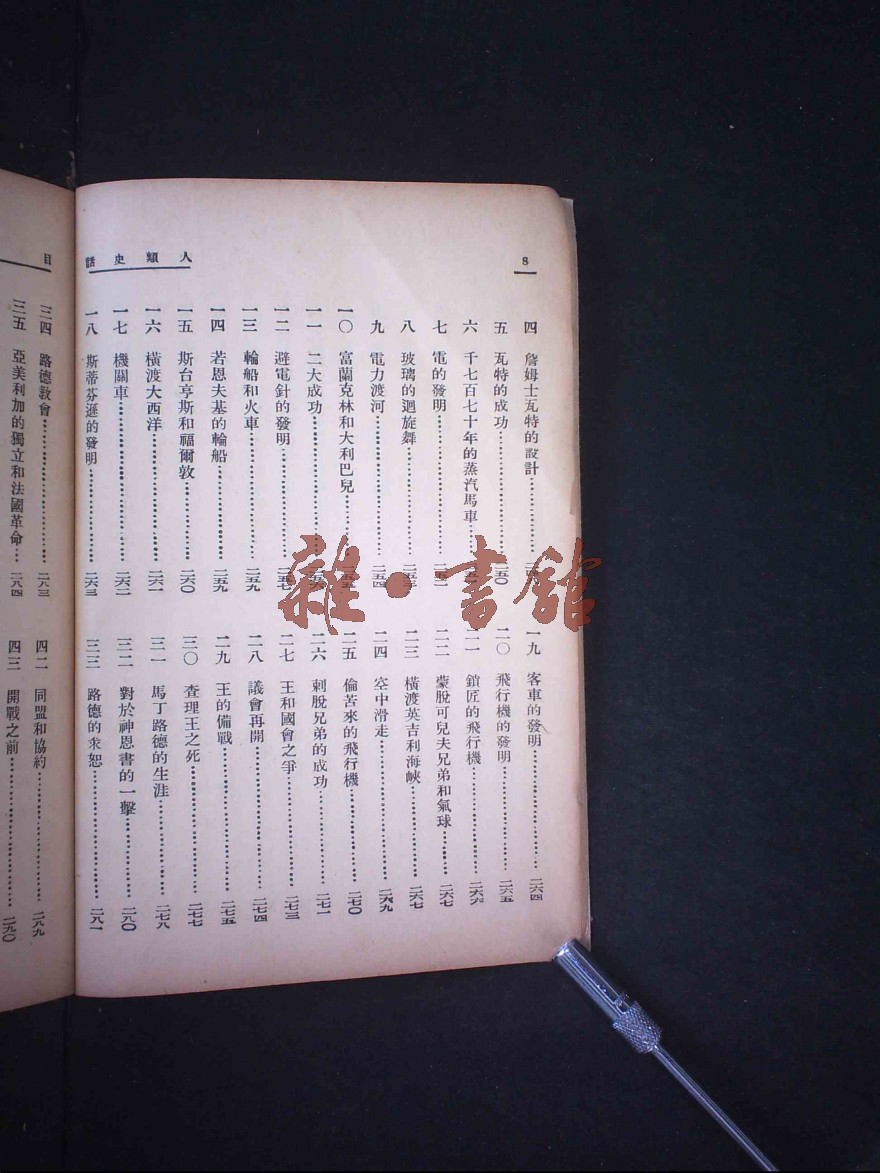 8
人類史話
四 詹姆士瓦特的設計
五 瓦特的成功 二五〇
六 千七百七十年的蒸汽馬車
七 電的發明 二五一
八 玻璃的迴旋舞 二五三
九 電力渡河 二五四
一〇 富蘭克林和大利巴兒 二五五
一一 二大成功 二五六
一二 避電針的發明 二五七
一三 輪船和火車 二五九
一四 若恩夫基的輪船 二五九
一五 斯台亨斯和福爾敦 二六〇
一六 橫渡大西洋 二六一
一七 機關車 二六二
一八 斯蒂芬遜的發明 二六三
一九 客車的發明 二六四
二〇 飛行機的發明 二六五
二一 鎖匠的飛行機 二六六
二二 蒙脫可兒夫兄弟和氣球 二六七
二三 橫渡英吉利海峽 二六七
二四 空中滑走 二六九
二五 倫苦來的飛行機 二七〇
二六 刺脫兄弟的成功 二七一
二七 王和國會之爭 二七三
二八 議會再開 二七四
二九 王的備戰 二七五
三〇 查理王之死 二七七
三一 馬丁路德的生涯 二七八
三二 對於神恩書的一擊 二八〇
三三 路德的釆恕 二八一
目
三四 路德教會 二八三
三五 亞美利加的獨立和法國革命 二八四
四二 同盟和協約 二八九
四三 開戰之前 二九〇
雜·書館